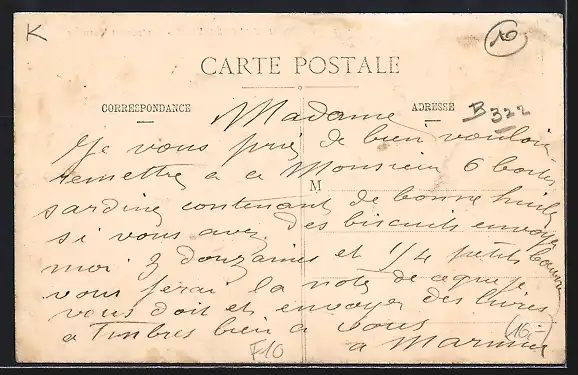 K
10
CARTE POSTALE
CORRESPONDANCE
ADRESSE
B 322
M
Madame
Je vous prie de bien vouloir
remettre a ce Monsieur 6 boites
sardine contenant de bonne huile
si vous avez des biscuits envoyez
moi 3 douzaines et 1/4 petits
vous ferai la note de ceque je
vous doit et envoyer des livres
a Timbres bien a vous
a
F10
16-